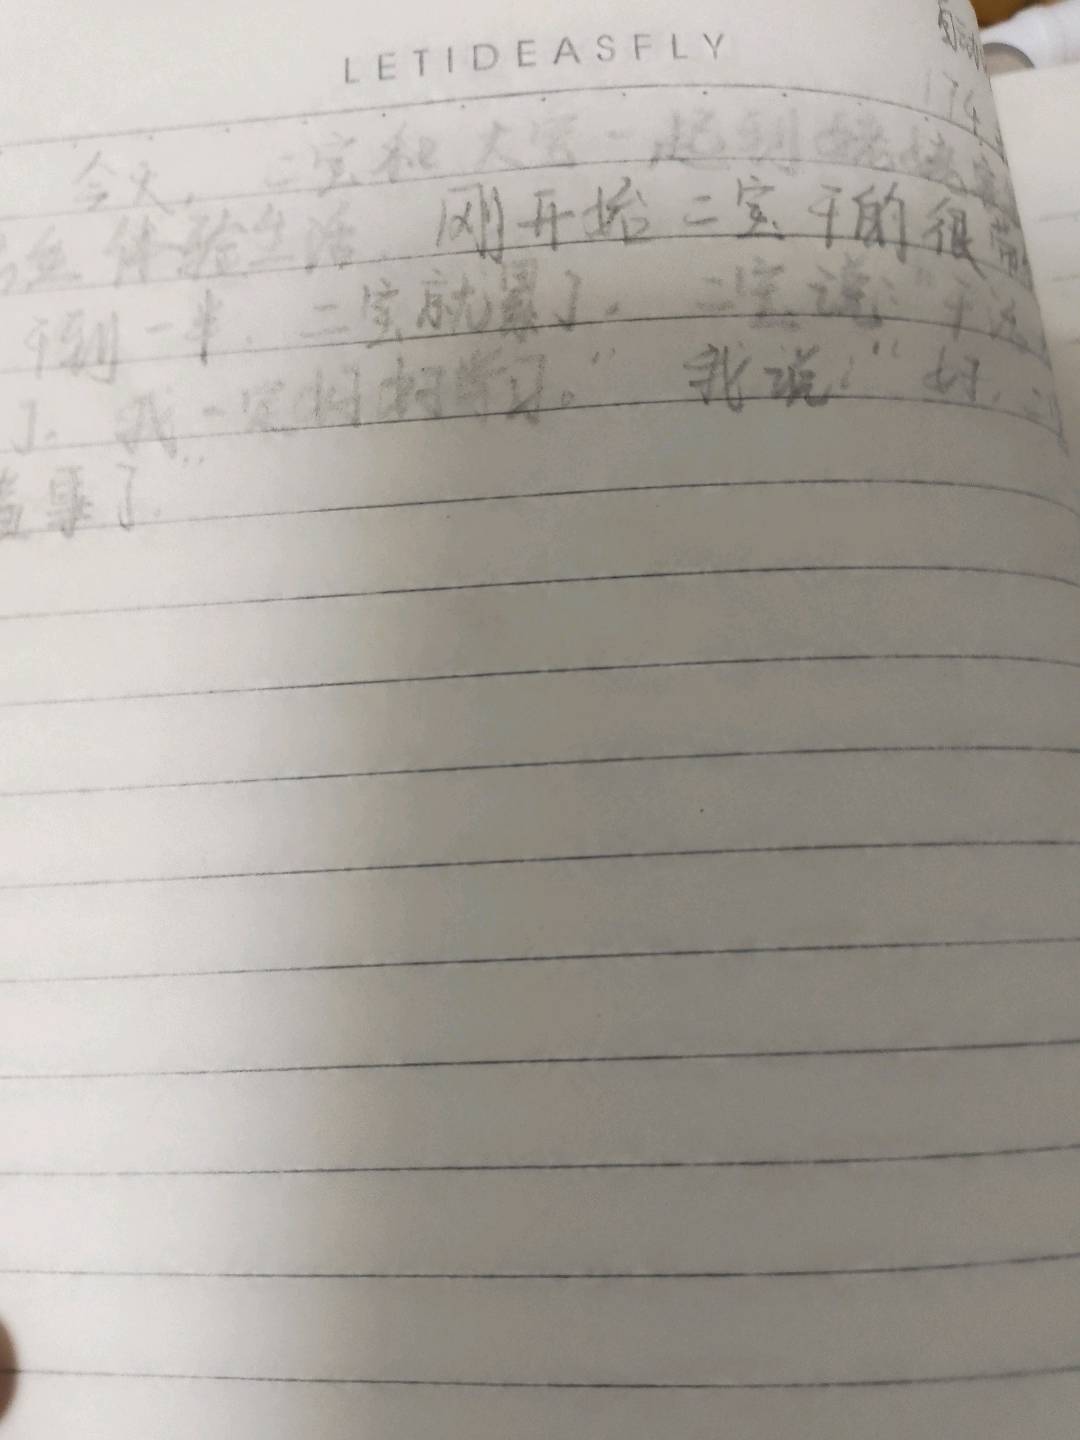 LETIDEASFLY
174
今天,二宝和大宝一起到姥姥家
体验生活.刚开始二宝干的很
干到一半.二宝就累了.二宝说:"干活
了.我一定好好学习。"我说:"好.二
了."